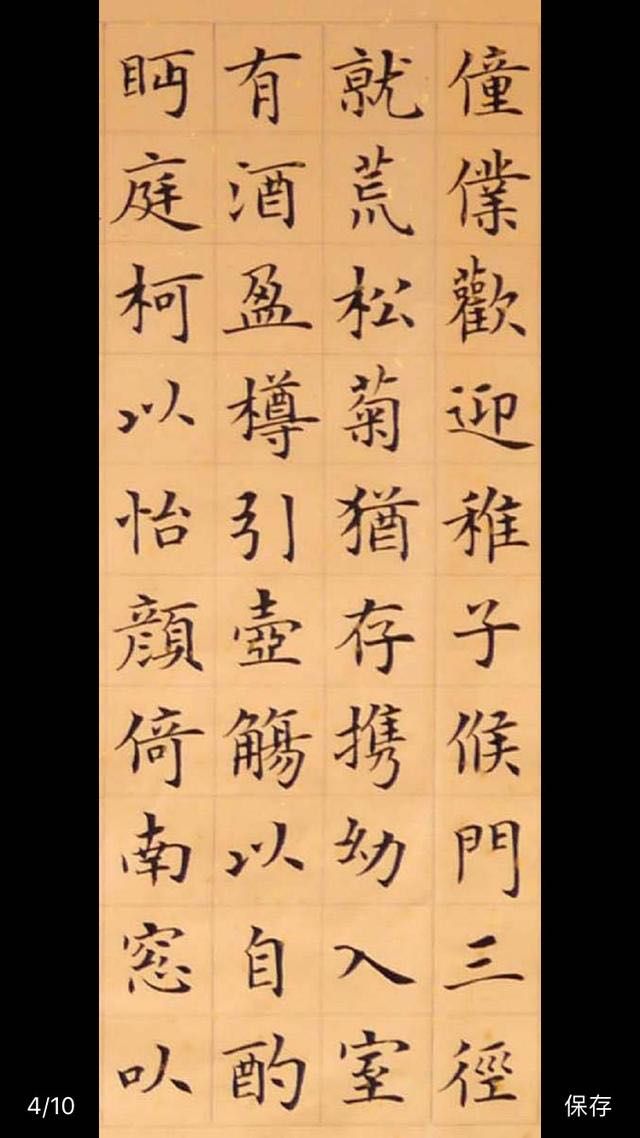 僮僕歡迎稚子候門三徑
就荒松菊猶存携幼入室
有酒盈樽引壺觴以自酌
眄庭柯以怡顔倚南窓以
4/10
保存